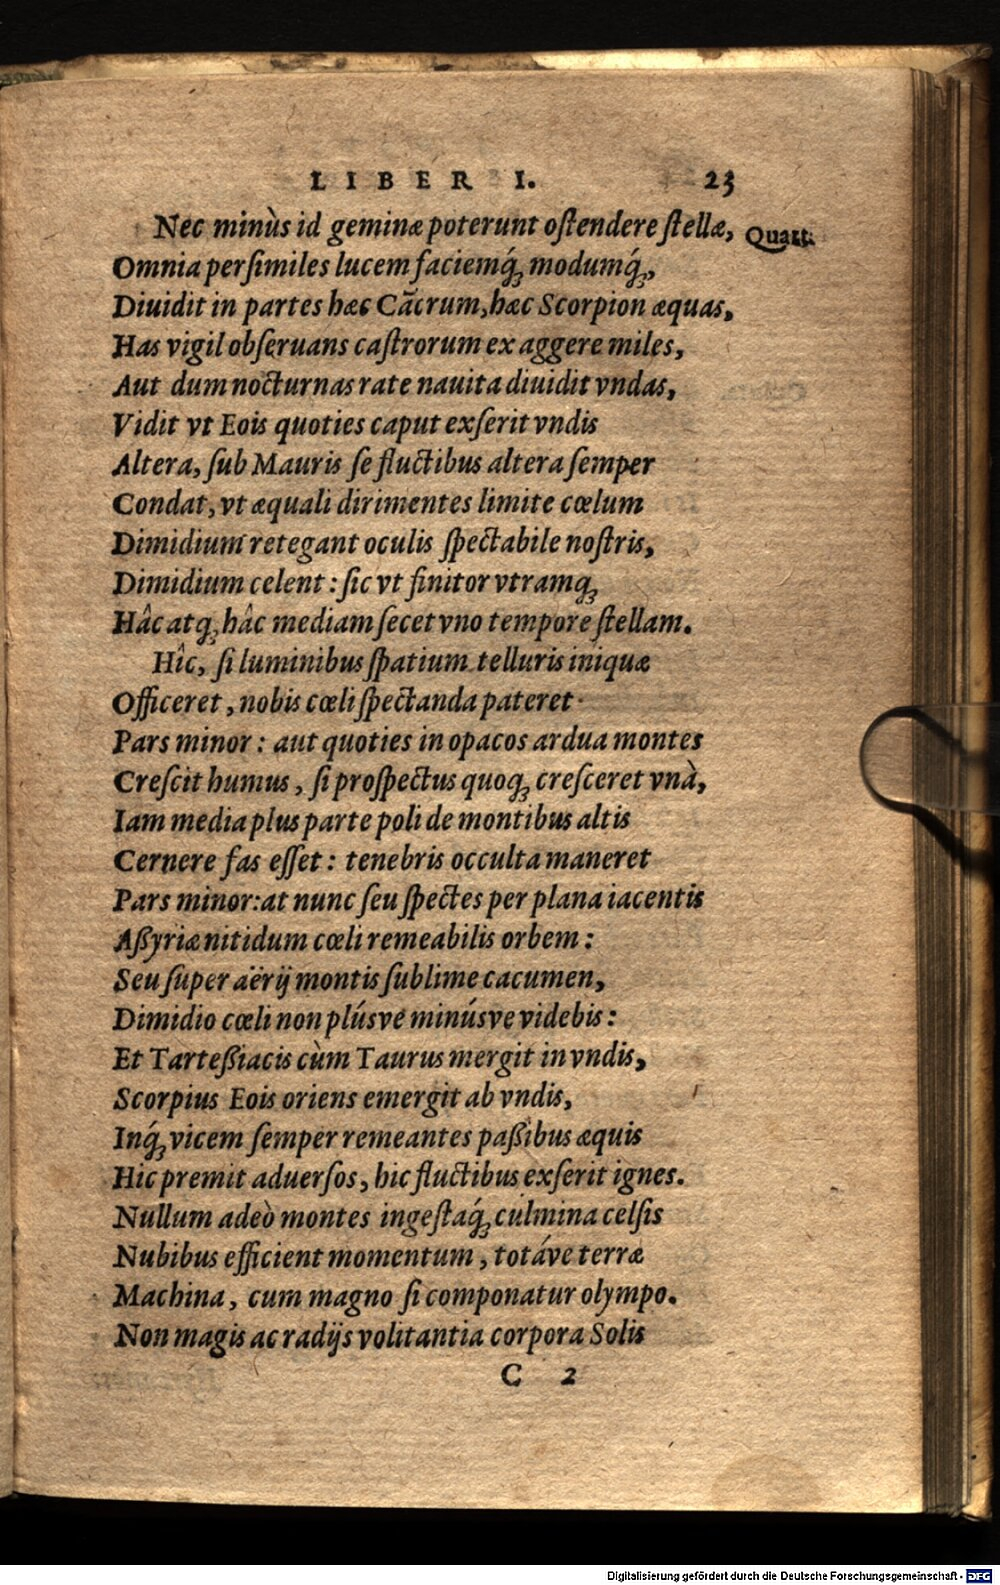 LIBER I. 23
Nec minùs id geminæ poterunt oſtendere ſtellæ, Quart.
Omnia perſimiles lucem faciemq́ꝫ modumq́ꝫ,
Diuidit in partes hæc Cãcrum, hæc Scorpion æquas,
Has vigil obſeruans caſtrorum ex aggere miles,
Aut dum nocturnas rate nauita diuidit vndas,
Vidit vt Eois quoties caput exſerit vndis
Altera, ſub Mauris ſe fluctibus altera ſemper
Condat, vt æquali dirimentes limite cœlum
Dimidium retegant oculis ſpectabile noſtris,
Dimidium celent : ſic vt finitor vtramqꝫ
Hâc atqꝫ hâc mediam ſecet vno tempore ſtellam.
Hîc, ſi luminibus ſpatium telluris iniquæ
Officeret, nobis cœli ſpectanda pateret
Pars minor : aut quoties in opacos ardua montes
Creſcit humus, ſi proſpectus quoqꝫ creſceret vnà,
Iam media plus parte poli de montibus altis
Cernere fas eſſet : tenebris occulta maneret
Pars minor: at nunc ſeu ſpectes per plana iacentis
Aßyriæ nitidum cœli remeabilis orbem :
Seu ſuper aërij montis ſublime cacumen,
Dimidio cœli non plúsve minúsve videbis :
Et Tarteßiacis cùm Taurus mergit in vndis,
Scorpius Eois oriens emergit ab vndis,
Inq́ꝫ vicem ſemper remeantes paßibus æquis
Hic premit aduerſos, hic fluctibus exſerit ignes.
Nullum adeò montes ingeſtaq́ꝫ culmina celſis
Nubibus efficient momentum, totáve terræ
Machina, cum magno ſi componatur olympo.
Non magis ac radijs volitantia corpora Solis
C 2
Digitalisierung gefördert durch die Deutsche Forschungsgemeinschaft - DFG